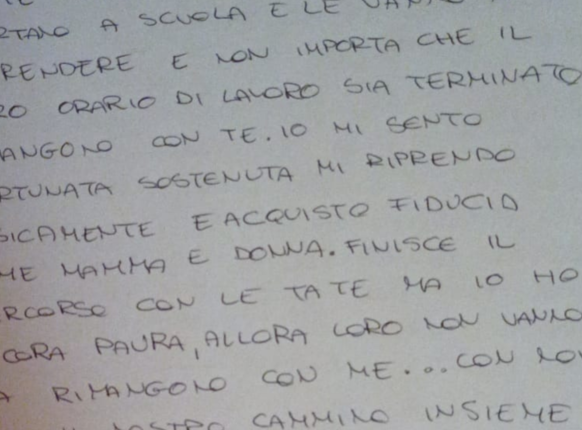 RTANO A SCUOLA E LE VANNO
RENDERE E NON IMPORTA CHE IL
RO ORARIO DI LAVORO SIA TERMINATO
ANGONO CON TE. IO MI SENTO
RTUNATA SOSTENUTA MI RIPRENDO
SICAMENTE E ACQUISTO FIDUCIA
ME MAMMA E DONNA. FINISCE IL
RCORSO CON LE TATE MA IO HO
CORA PAURA, ALLORA LORO NON VANNO
A RIMANGONO CON ME... CON NOI
NOSTRO CAMMINO INSIEME